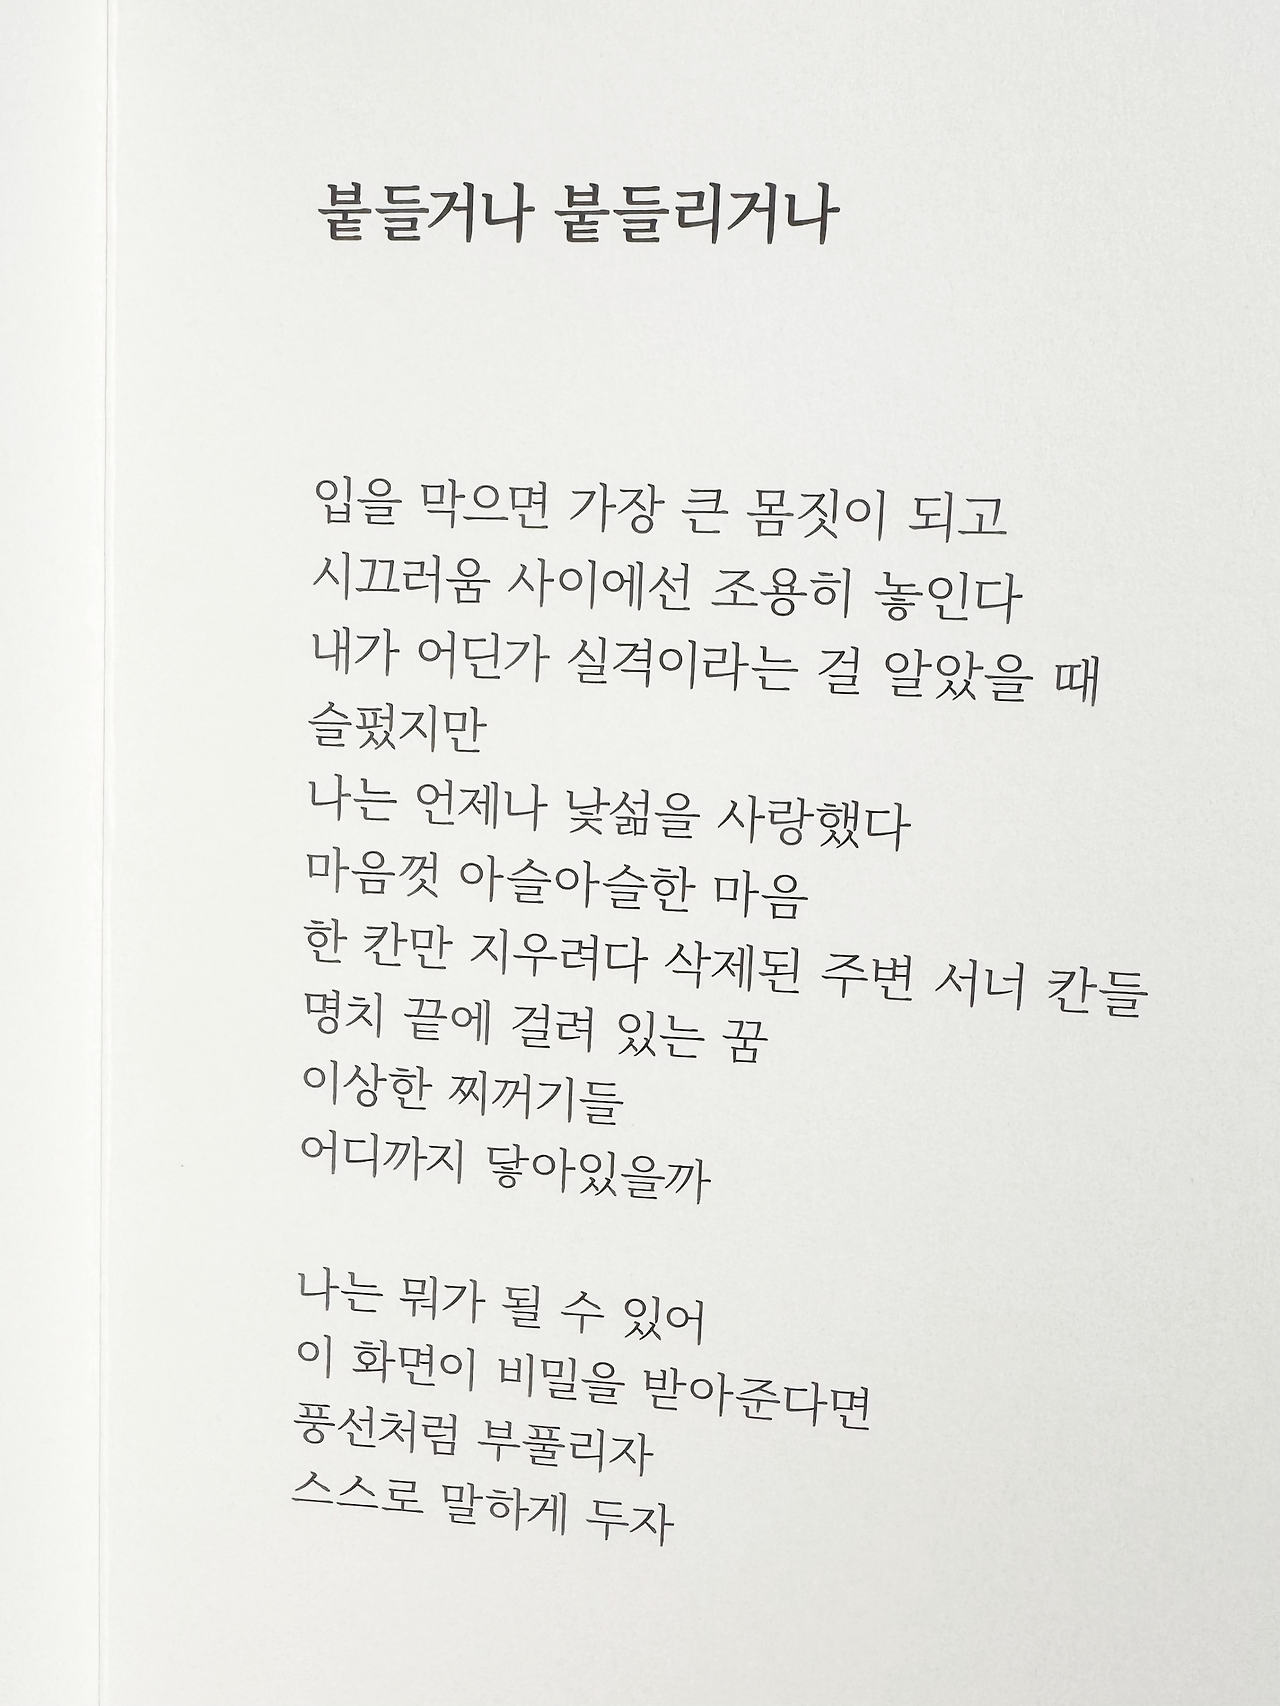 붙들거나 붙들리거나
입을 막으면 가장 큰 몸짓이 되고
시끄러움 사이에선 조용히 놓인다
내가 어딘가 실격이라는 걸 알았을 때
슬펐지만
나는 언제나 낯섦을 사랑했다
마음껏 아슬아슬한 마음
한 칸만 지우려다 삭제된 주변 서너 칸들
명치 끝에 걸려 있는 꿈
이상한 찌꺼기들
어디까지 닿아있을까
나는 뭐가 될 수 있어
이 화면이 비밀을 받아준다면
풍선처럼 부풀리자
스스로 말하게 두자